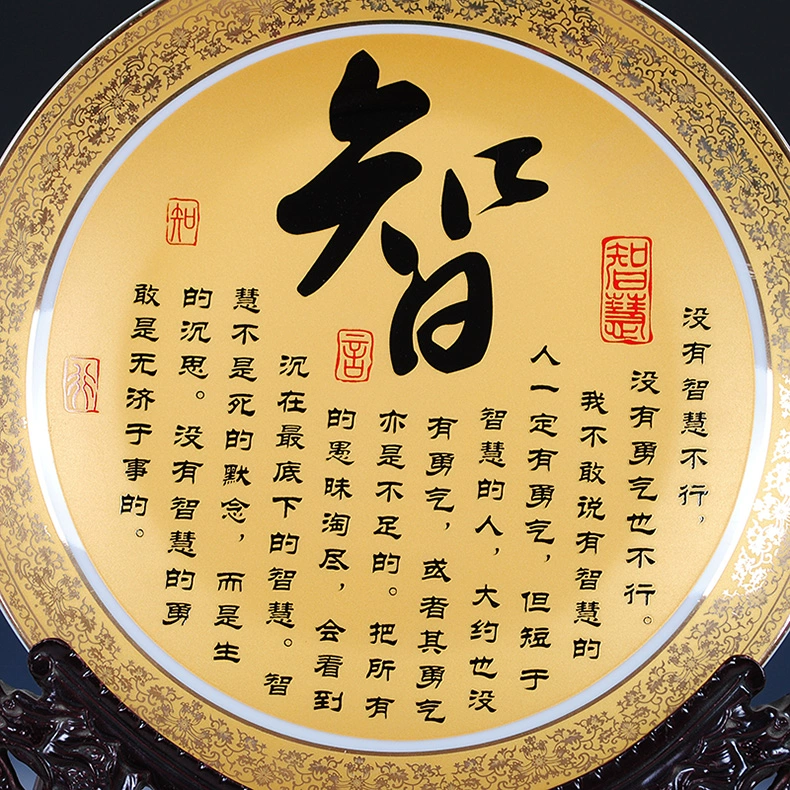 智
智慧
没有智慧不行，
没有勇气也不行。
我不敢说有智慧的
人一定有勇气，但短于
智慧的人，大约也没
有勇气，或者其勇气
亦是不足的。把所有
的愚昧淘尽，会看到
沉在最底下的智慧。智
慧不是死的默念，而是生
的沉思。没有智慧的勇
敢是无济于事的。
言
知
行